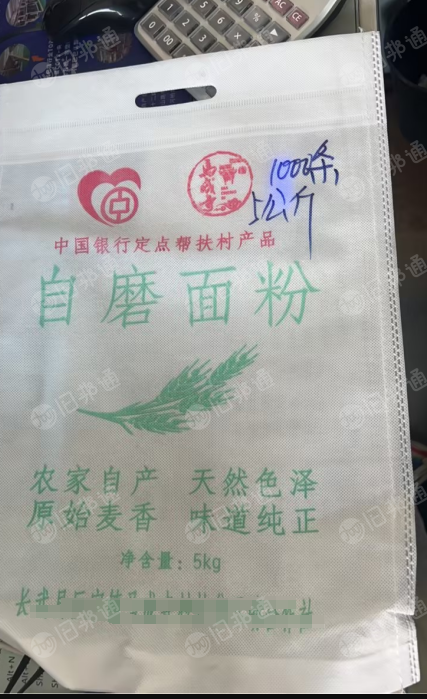 1000条,
5公斤
中国银行定点帮扶村产品
自磨面粉
农家自产 天然色泽
原始麦香 味道纯正
净含量: 5kg
旧邦通